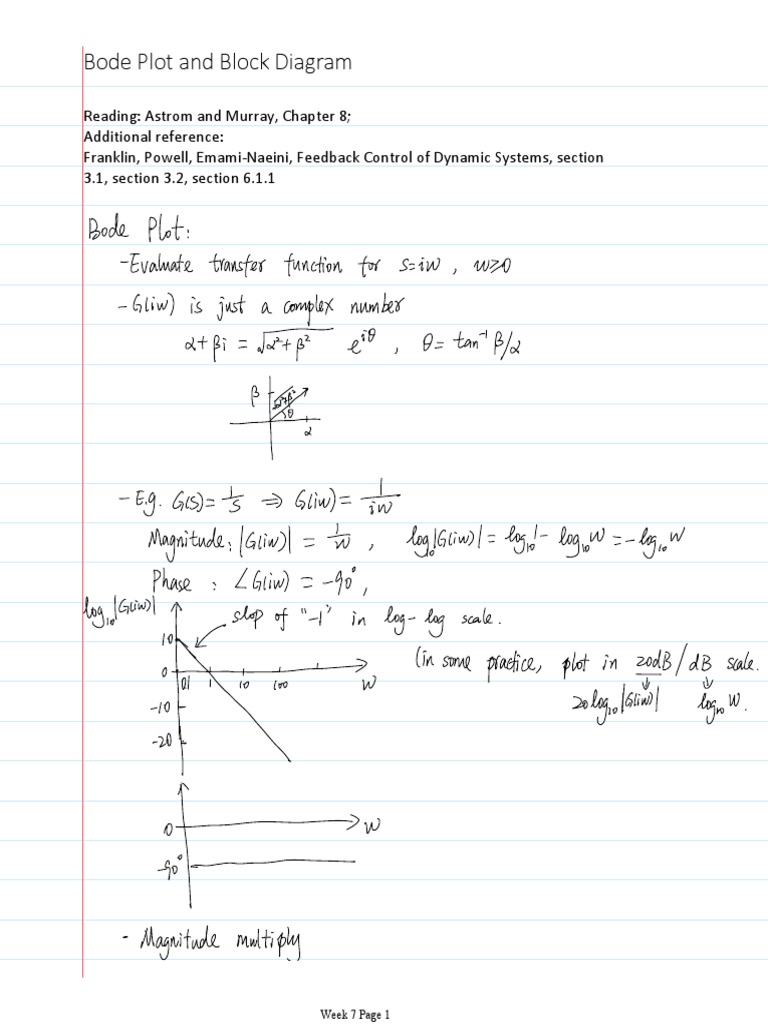 Bode Plot and Block Diagram
Reading: Astrom and Murray, Chapter 8;
Additional reference:
Franklin, Powell, Emami-Naeini, Feedback Control of Dynamic Systems, section
3.1, section 3.2, section 6.1.1
Bode Plot:
-Evaluate transfer function for s=iw, w≥0
-G(iw) is just a complex number
α+βi = √(α²+β²) e^{iθ}, θ=tan⁻¹ β/α
β √(α²+β²)
θ
α
-E.g. G(s)=1/s ⇒ G(iw)=1/iw
Magnitude: |G(iw)| = 1/w, log₁₀|G(iw)| = log₁₀1 - log₁₀w = -log₁₀w
Phase: ∠G(iw) = -90°,
log₁₀|G(iw)|
slop of "-1" in log-log scale.
10
(in some practice, plot in 20dB/dB scale.
0
01 1 10 100 w
20log₁₀|G(iw)| log₁₀w.
-10
-20
0 w
-90°
- Magnitude multiply
Week 7 Page 1